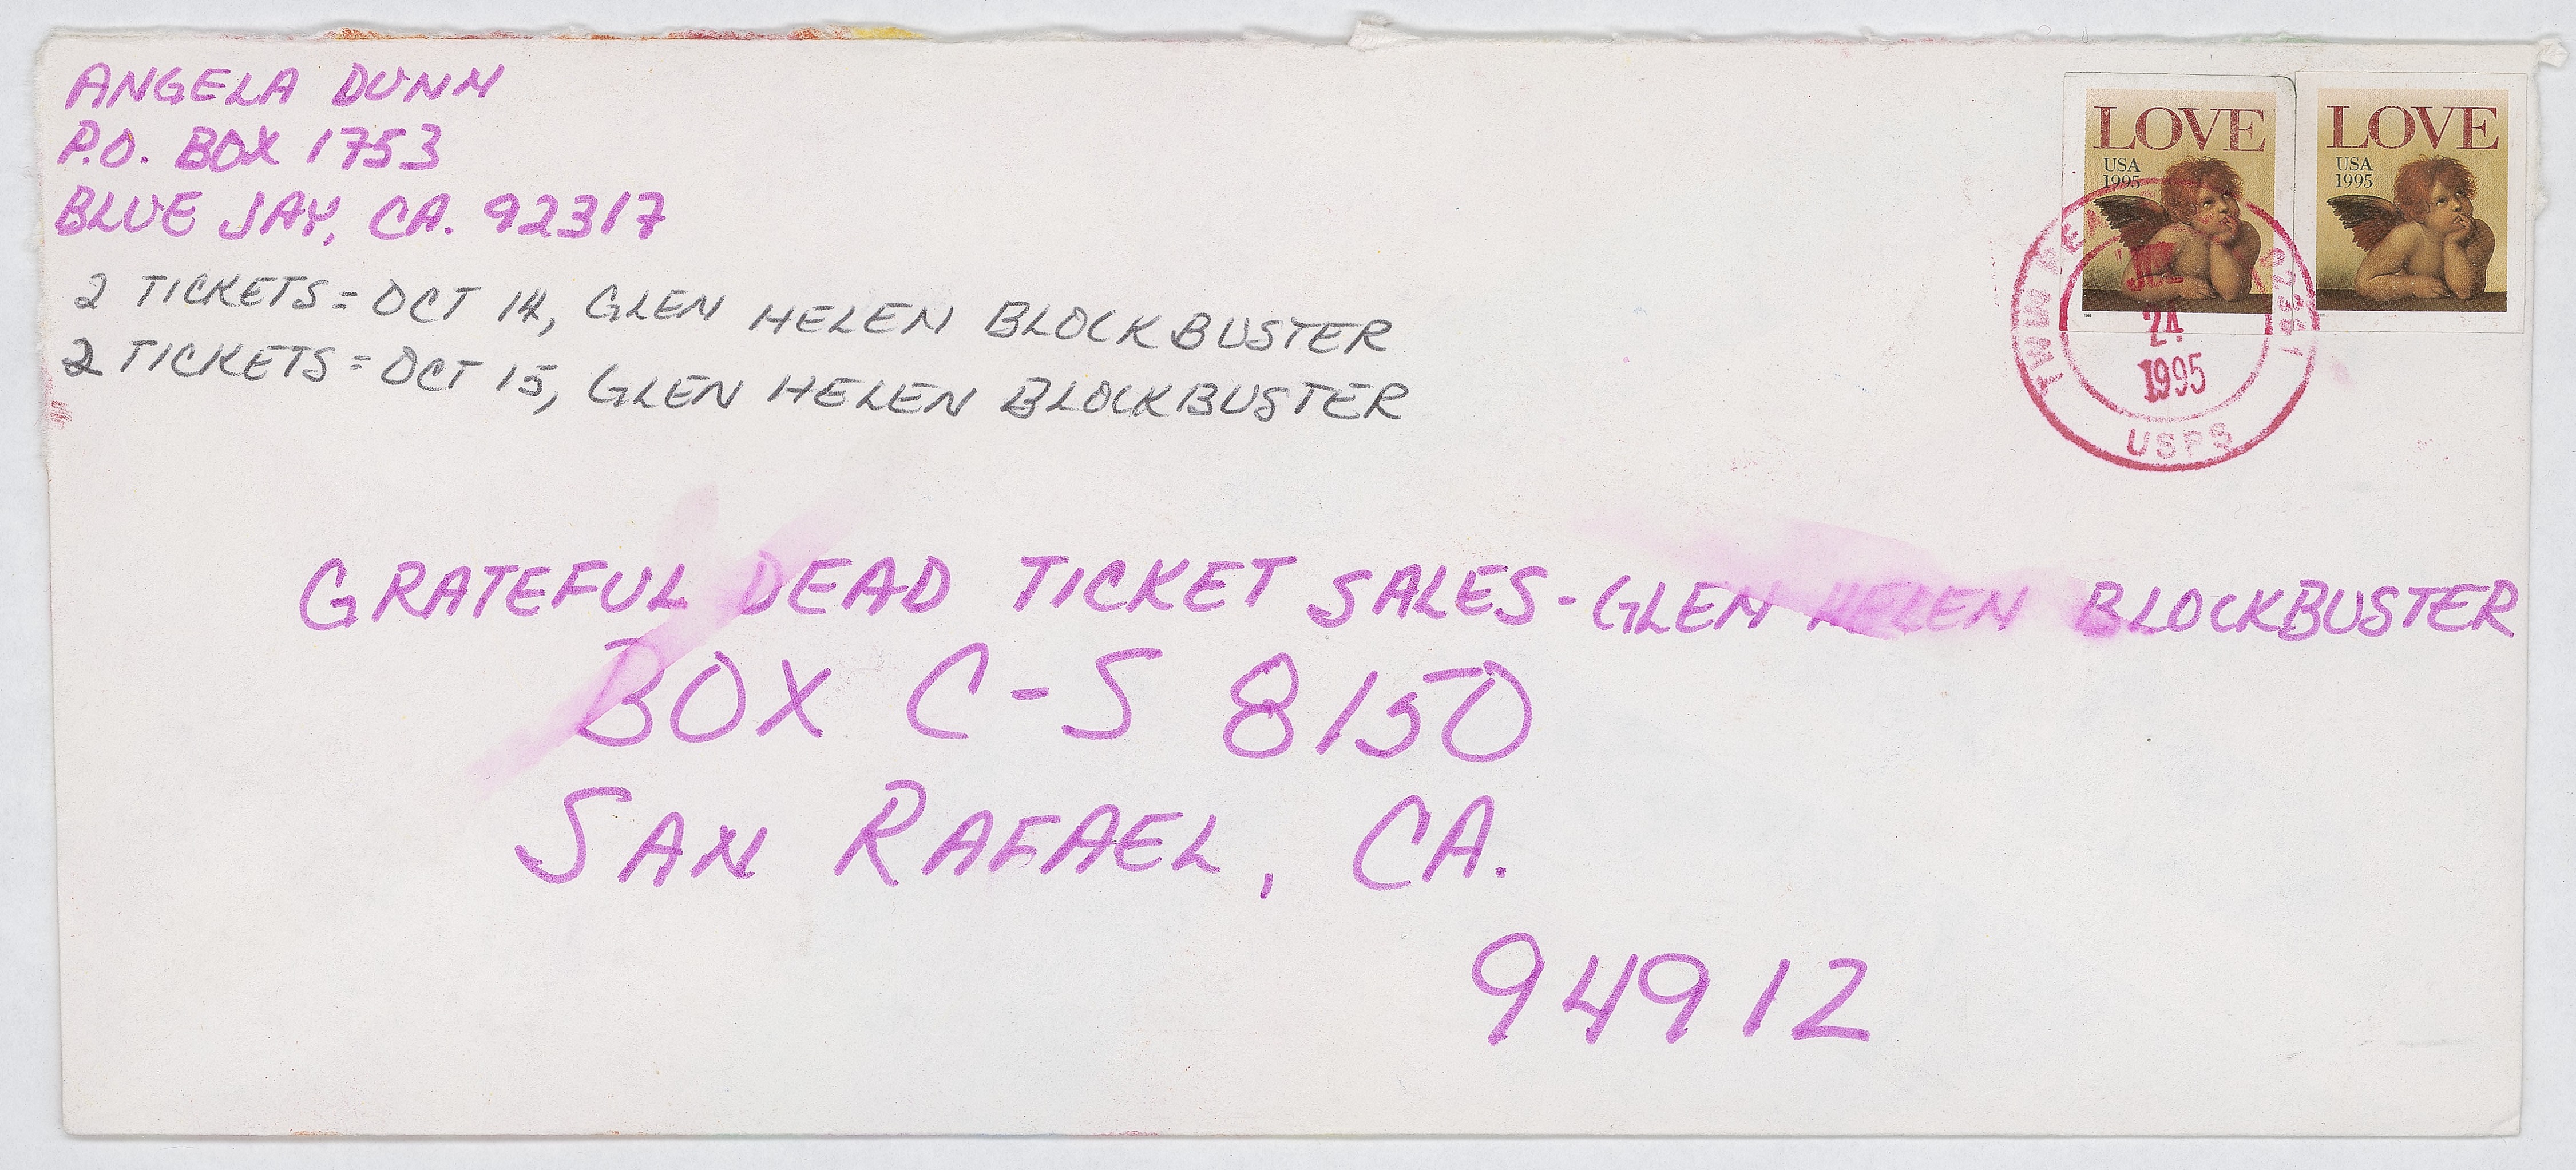 ANGELA DUNN
P.O. BOX 1753
BLUE JAY, CA. 92317
2 TICKETS = OCT 14, GLEN HELEN BLOCKBUSTER
2 TICKETS = OCT 15, GLEN HELEN BLOCKBUSTER
LOVE
USA
1995
LOVE
USA
1995
TWIN PEAKS
92391
JUL
24
1995
USPS
GRATEFUL DEAD TICKET SALES - GLEN HELEN BLOCKBUSTER
BOX C-S 8150
SAN RAFAEL, CA.
94912